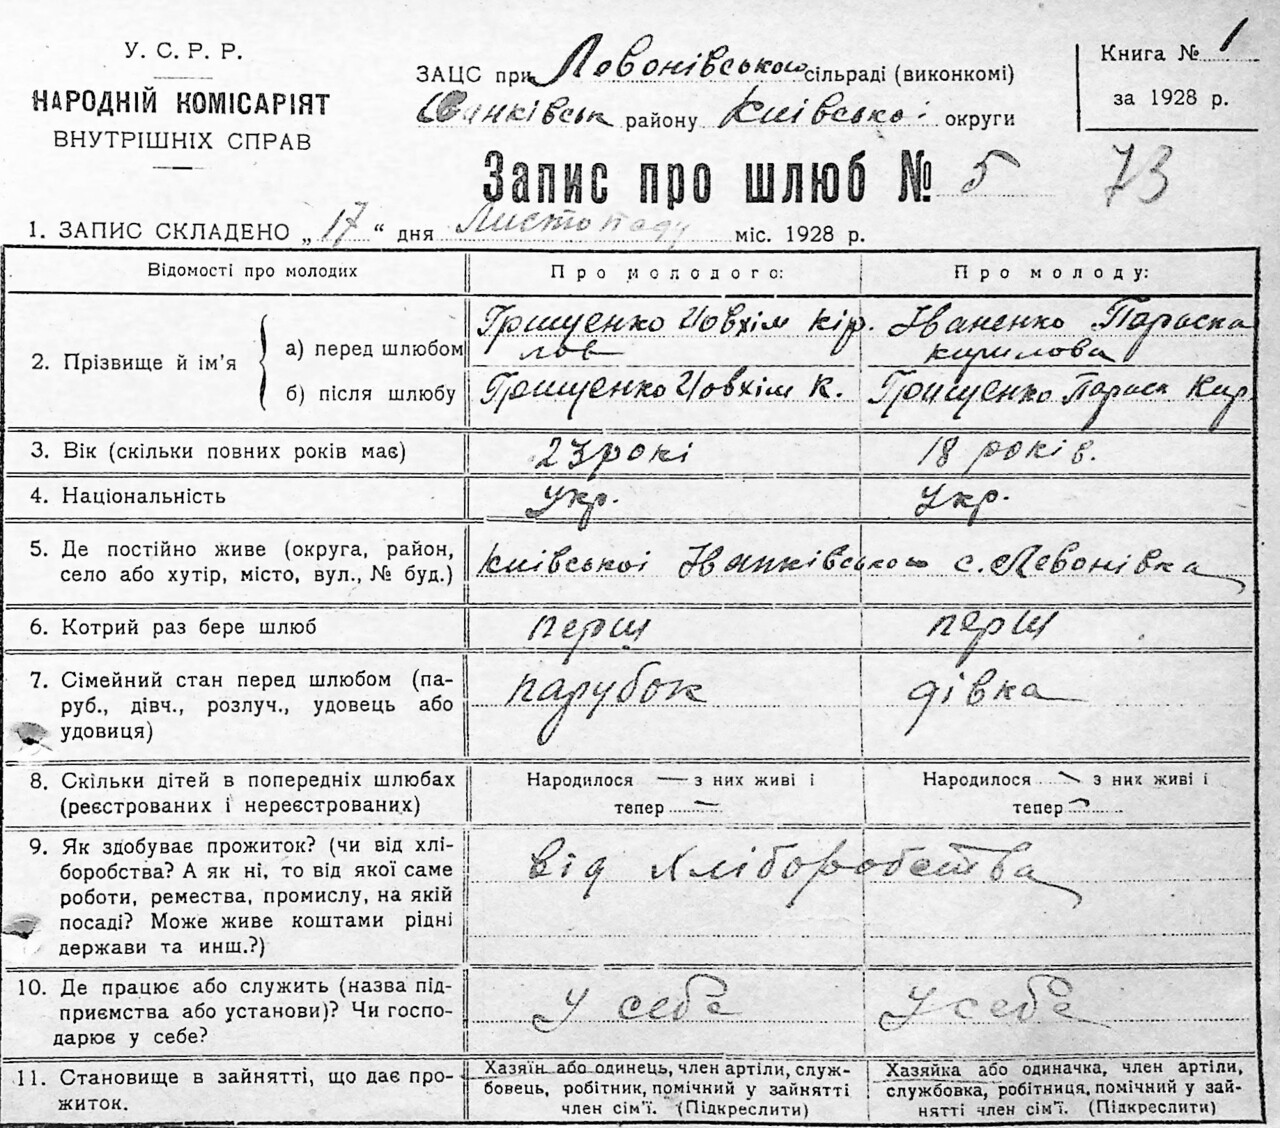 У. С. Р. Р.
НАРОДНІЙ КОМІСАРІЯТ
ВНУТРІШНІХ СПРАВ
ЗАЦС при Левонівською сільраді (виконкомі)
Іванківськ району Київської округи
Книга № 1
за 1928 р.
Запис про шлюб № 5
73
1. ЗАПИС СКЛАДЕНО „17“ дня Листопаду міс. 1928 р.
Відомості про молодих
Про молодого:
Про молоду:
2. Прізвище й ім'я
а) перед шлюбом
Грищенко Йовхім Кір.
лов
Іваненко Параска
кирилова
б) після шлюбу
Грищенко Йовхім К.
Грищенко Параск Кир.
3. Вік (скільки повних років має)
23 рокі
18 років.
4. Національність
Укр.
Укр.
5. Де постійно живе (округа, район,
село або хутір, місто, вул., № буд.)
Київської Іванківською с. Левонівка
6. Котрий раз бере шлюб
перш
перш
7. Сімейний стан перед шлюбом (па-
руб., дівч., розлуч., удовець або
удовиця)
парубок
дівка
8. Скільки дітей в попередніх шлюбах
(реєстрованих і нереєстрованих)
Народилося — з них живі і
тепер —
Народилося — з них живі і
тепер —
9. Як здобуває прожиток? (чи від хлі-
боробства? А як ні, то від якої саме
роботи, ремества, промислу, на якій
посаді? Може живе коштами рідні
держави та инш.?)
від хліборобства
10. Де працює або служить (назва під-
приємства або установи)? Чи госпо-
дарює у себе?
у себе
у себе
11. Становище в зайнятті, що дає про-
житок.
Хазяїн або одинець, член артіли, служ-
бовець, робітник, помічний у зайнятті
член сім'ї. (Підкреслити)
Хазяйка або одиначка, член артіли,
службовка, робітниця, помічний у зай-
нятті член сім'ї. (Підкреслити)